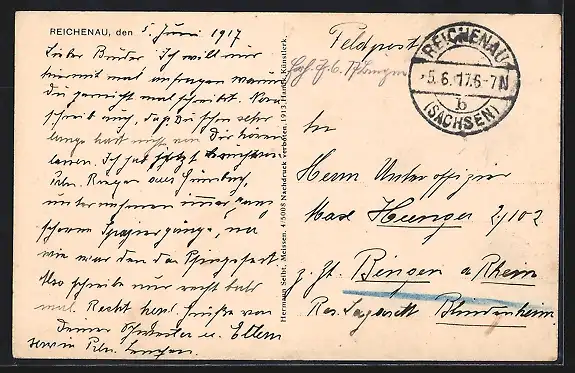 REICHENAU, den 5. Juni 1917
Lieber Bruder. Ich will nur
hiermit mal anfragen warum
Du gar nicht mal schreibst.
schreib mir, daß Du schon sehr
lange hast nicht von Dir hören
lassen. Ich habe jetzt
unternehmen immer ganz
schöne Spaziergänge, nur
wie war denn das Pfingstfest.
Also schreibe nur recht bald
mal. Recht herzl. Grüße von
Deiner Schwester u. Eltern
sowie
Hermann Seibt, Meissen. 4/5008 Nachdruck verboten. 1913 Hands Künstlerk.
Feldpost
REICHENAU
-5.6.17.6-7N
b
(SACHSEN)
An
Herrn Unteroffizier
Max Hunger
z. Zt. Bingen a Rhein
Res. Lazarett Blindenheim